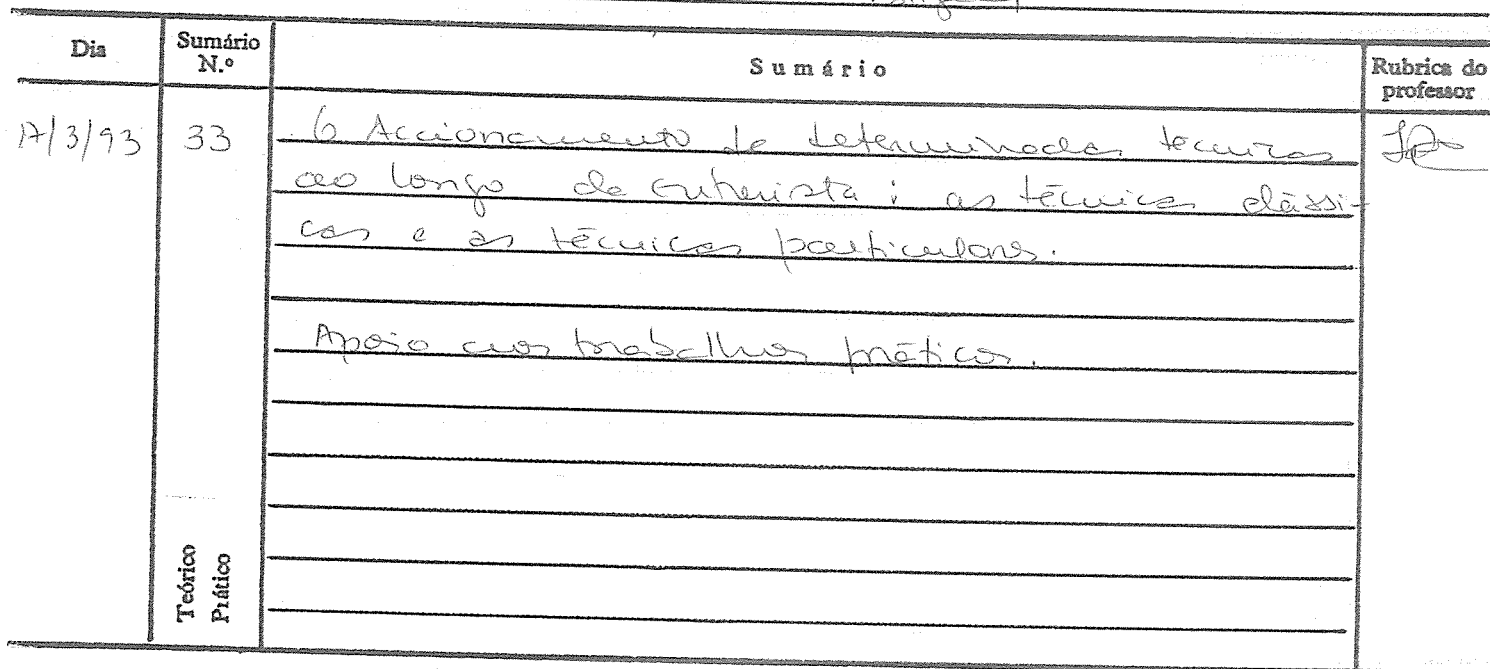 Dia Sumário N.º Sumário Rubrica do professor
17/3/93 33 O Accionamento de determinadas técnicas
ao longo da entrevista: as técnicas clássi-
cas e as técnicas particulares.
Apoio aos trabalhos práticos.
Teórico
Prático